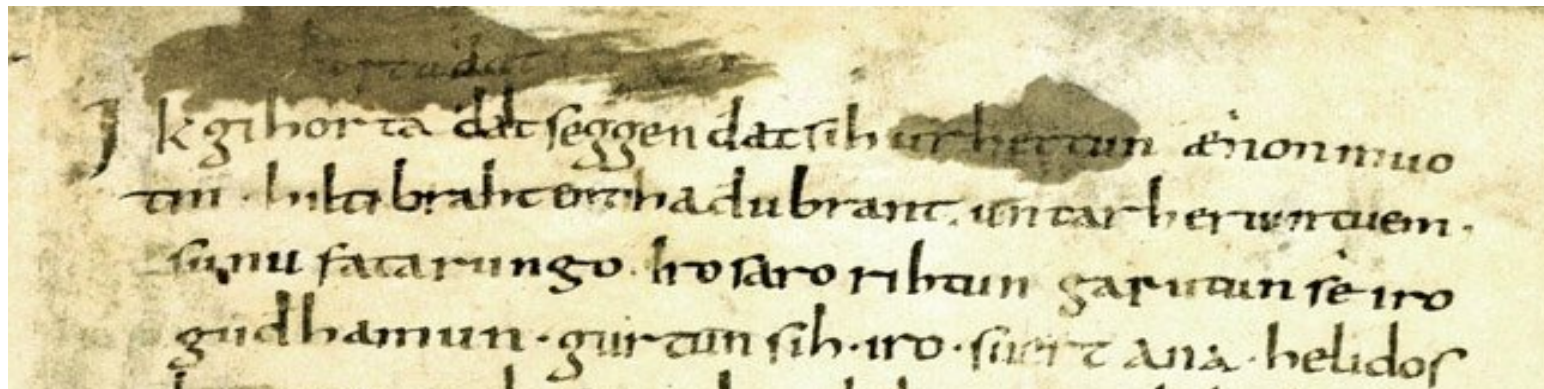 Ik gihorta dat seggen dat sih urhettun ænon muo
tin · hiltibraht enti hadubrant · untar heriun tuem ·
sunu fatarungo · iro saro rihtun garutun sê iro
gudhamun · gurtun sih · iro · suert ana · helidos